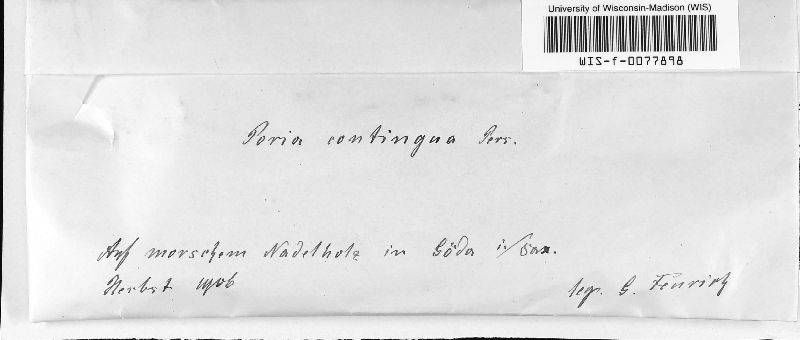 University of Wisconsin-Madison (WIS)
WIS-f-0077898
Poria contingua Pers.
Auf morschem Nadelholz in Göda i/Sax.
Herbst 1906
leg. G. Feurich